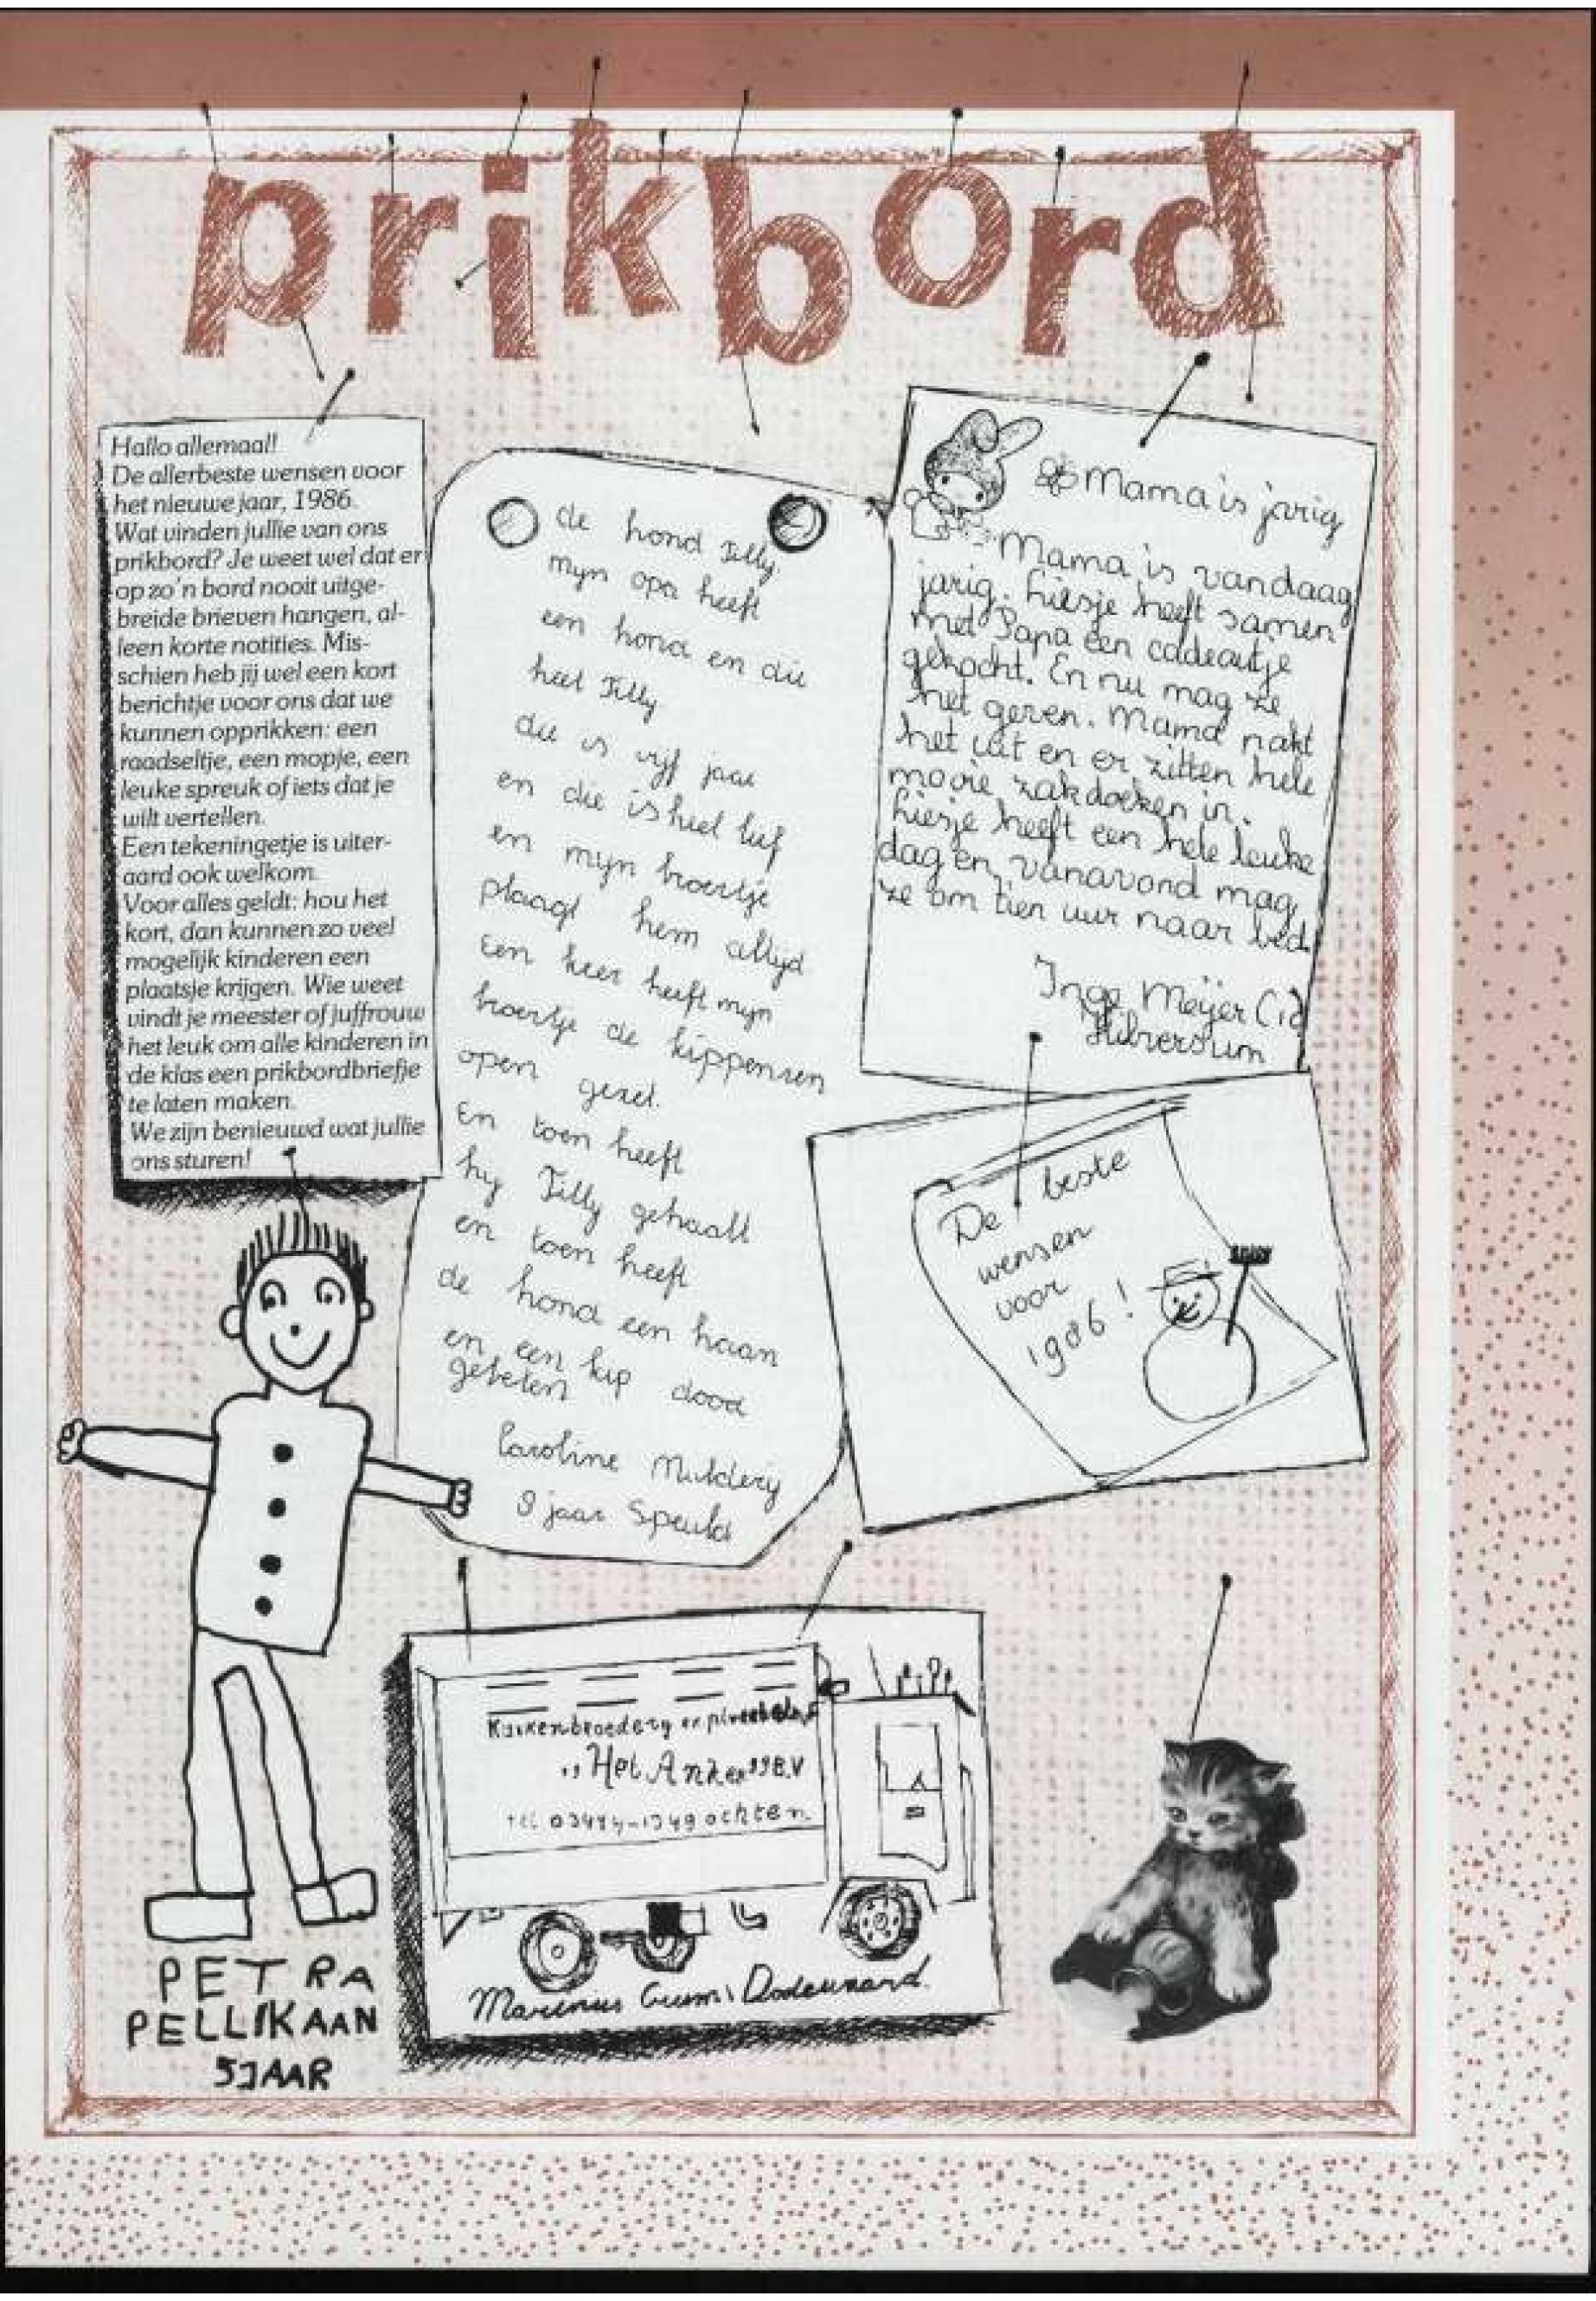 prikbord
Hallo allemaal!
De allerbeste wensen voor
het nieuwe jaar, 1986.
Wat vinden jullie van ons
prikbord? Je weet wel dat er
op zo'n bord nooit uitge-
breide brieven hangen, al-
leen korte notities. Mis-
schien heb jij wel een kort
berichtje voor ons dat we
kunnen opprikken: een
raadseltje, een mopje, een
leuke spreuk of iets dat je
wilt vertellen.
Een tekeningetje is uiter-
aard ook welkom.
Voor alles geldt: hou het
kort, dan kunnen zo veel
mogelijk kinderen een
plaatsje krijgen. Wie weet
vindt je meester of juffrouw
het leuk om alle kinderen in
de klas een prikbordbriefje
te laten maken.
We zijn benieuwd wat jullie
ons sturen!
de hond Tilly
myn opa heeft
een hond en die
heet Tilly
die is vijf jaar
en die is heel lief
en myn broertje
plaagt hem altyd
Een keer heeft myn
broertje de kippenren
open gezet.
En toen heeft
hy Tilly gehaalt
en toen heeft
de hond een haan
en een kip dood
gebeten
Caroline Mulderij
9 jaar Speuld
Mama is jarig
Mama is vandaag
jarig. Liesje heeft samen
met Papa een cadeautje
gekocht. En nu mag ze
het geven. Mama pakt
het uit en er zitten hele
mooie zakdoeken in.
Liesje heeft een hele leuke
dag en vanavond mag
ze om tien uur naar bed
Inge Meijer
Hilversum
De beste
wensen
voor
1986!
Kuikenbroedery en
,, Het Anker" B.V
tel ochten
Marinus Dodewaard.
PETRA
PELLIKAAN
5 JAAR